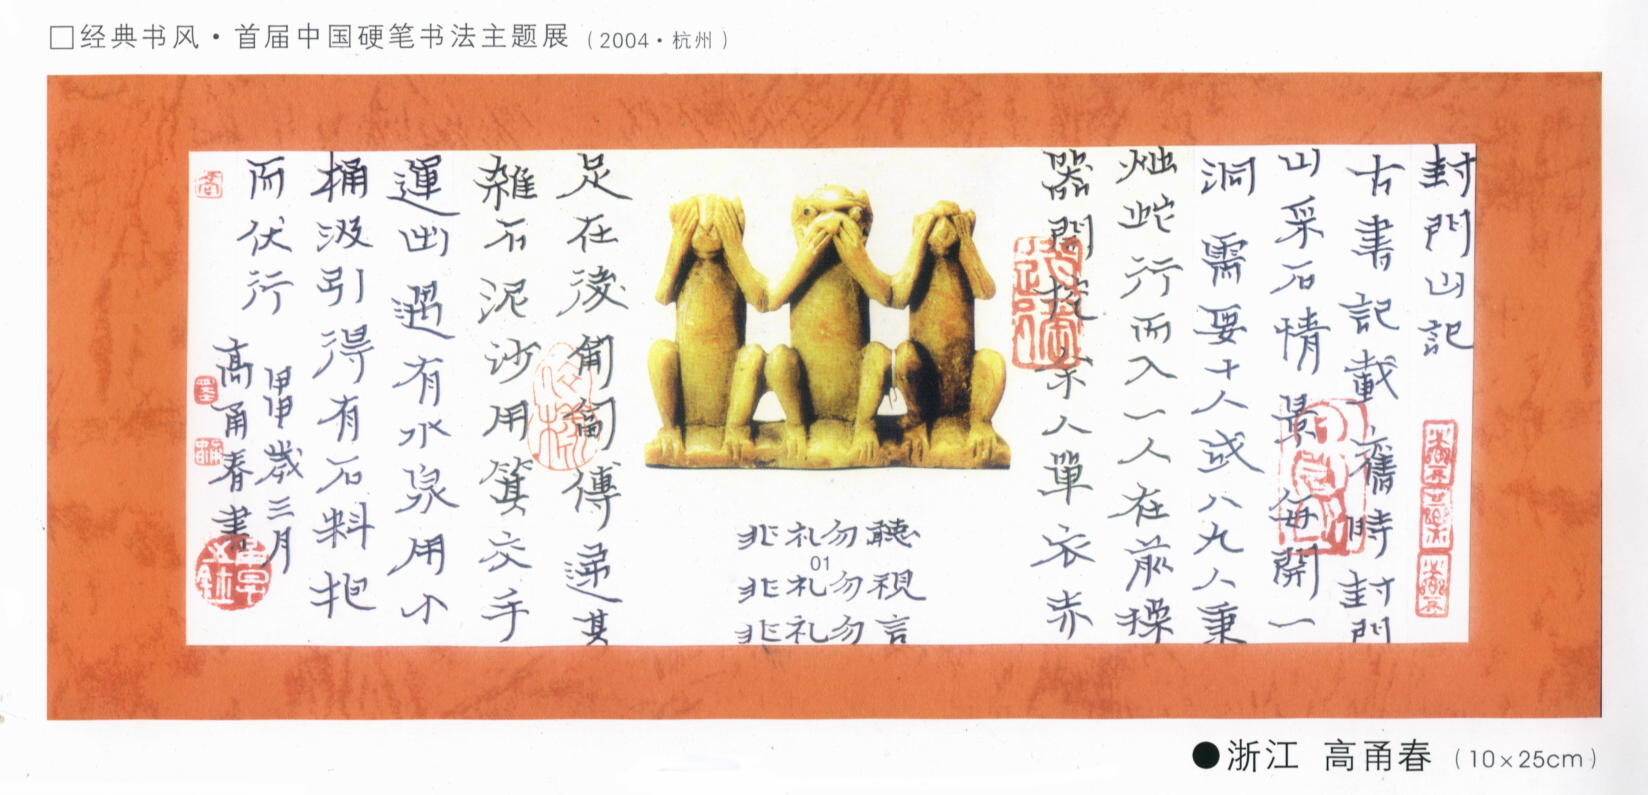 □经典书风·首届中国硬笔书法主题展（2004·杭州）
封門山记
古書記載舊時封門
山采石情景每開一
洞需要十人或八九人秉
烛蛇行而入一人在前操
器開挖餘人單衣赤
足在後匍匐傳递其
雜石泥沙用箕交手
運出遇有水泉用小
桶汲引得有石料抱
而伏行
甲申歲三月
高甬春書
非礼勿聽
01
非礼勿視
非礼勿言
●浙江 高甬春（10×25cm）